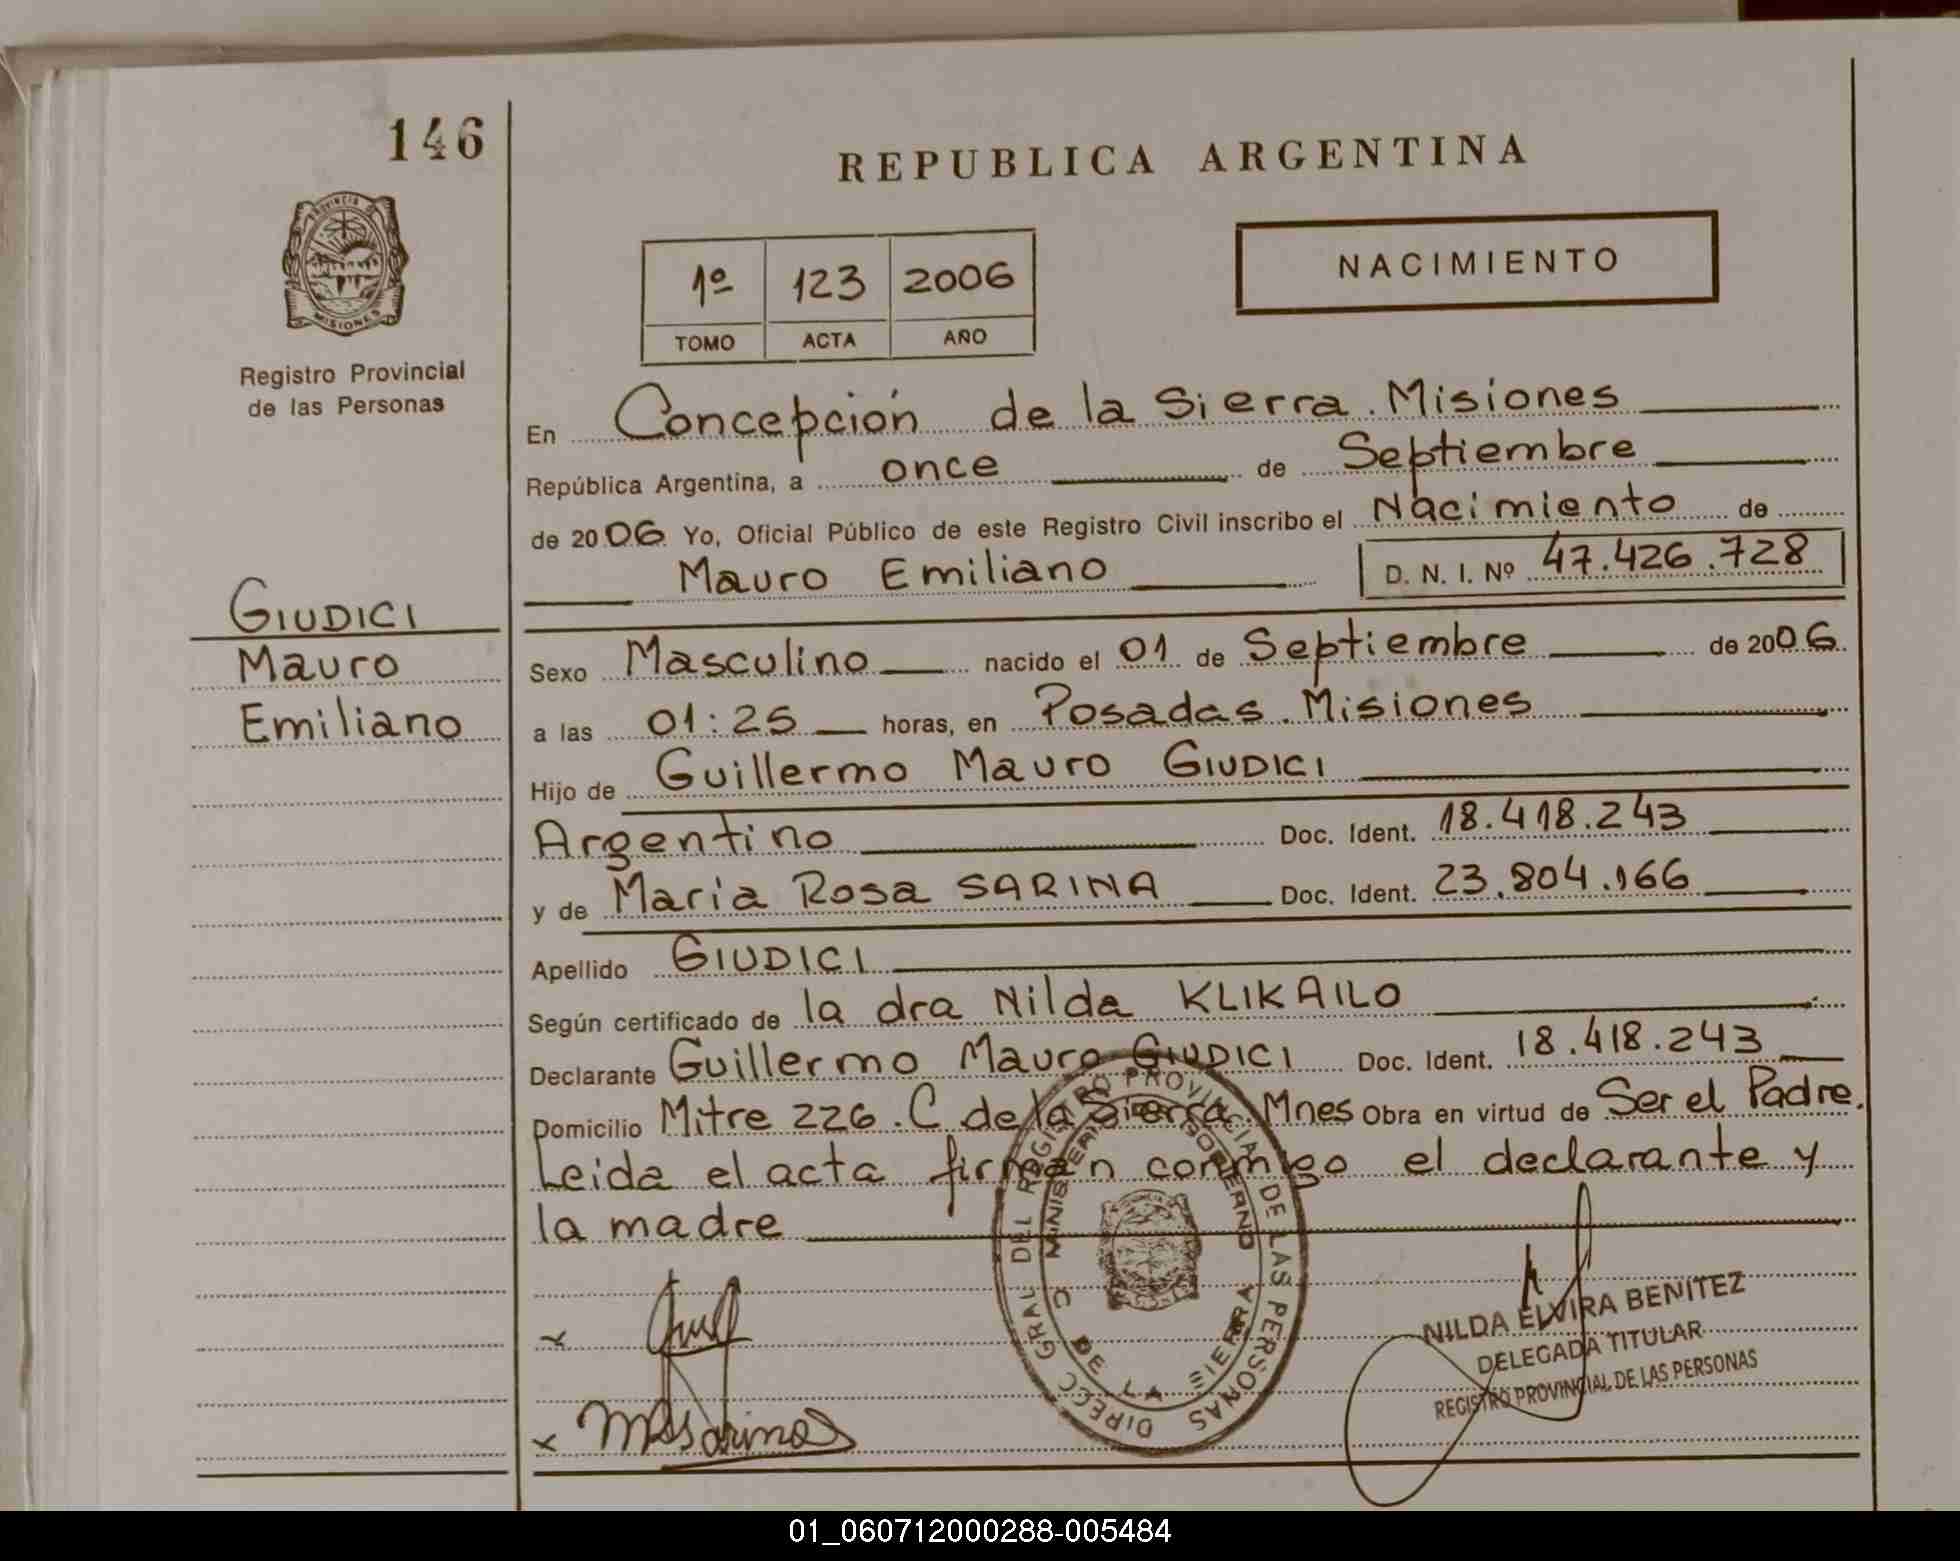 146
REPUBLICA ARGENTINA
PROVINCIA DE
MISIONES
Registro Provincial
de las Personas
1º 123 2006
TOMO ACTA AÑO
NACIMIENTO
En Concepción de la Sierra. Misiones
República Argentina, a once de Septiembre
de 2006 Yo, Oficial Público de este Registro Civil inscribo el Nacimiento de
Mauro Emiliano D. N. I. Nº 47.426.728
GIUDICI
Mauro
Emiliano
Sexo Masculino nacido el 01 de Septiembre de 2006
a las 01:25 horas, en Posadas. Misiones
Hijo de Guillermo Mauro GIUDICI
Argentino Doc. Ident. 18.418.243
y de Maria Rosa SARINA Doc. Ident. 23.804.166
Apellido GIUDICI
Según certificado de la dra Nilda KLIKAILO
Declarante Guillermo Mauro GIUDICI Doc. Ident. 18.418.243
Domicilio Mitre 226. C de la Sierra. Mnes Obra en virtud de Ser el Padre.
Leida el acta firman conmigo el declarante y
la madre
DIRECC GRAL DEL REGISTRO PROVINCIAL DE LAS PERSONAS
MINISTERIO DE GOBIERNO
C DE LA SIERRA
NILDA ELVIRA BENITEZ
DELEGADA TITULAR
REGISTRO PROVINCIAL DE LAS PERSONAS
01_060712000288-005484